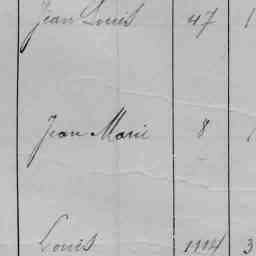 Jean Louis 47 1
Jean Marie 8 1
Louis 1114 3